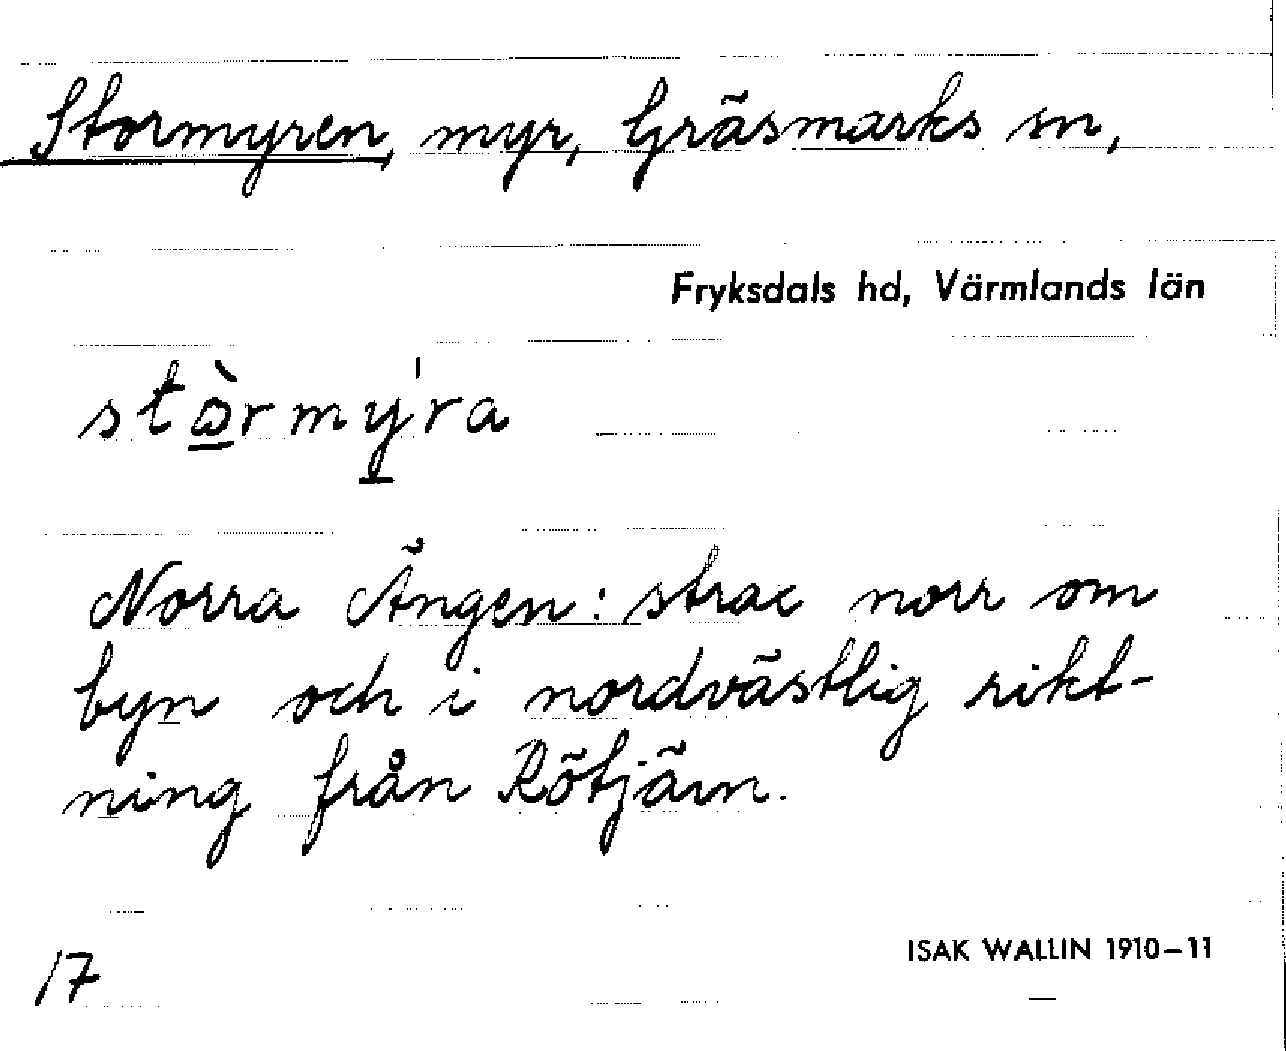 Stormyren, myr, Gräsmarks sn,
Fryksdals hd, Värmlands län
stɷ̠̀rmy̠ˈra
Norra Ängen: strax norr om
byn och i nordvästlig rikt-
ning från Rötjärn.
17
ISAK WALLIN 1910–11